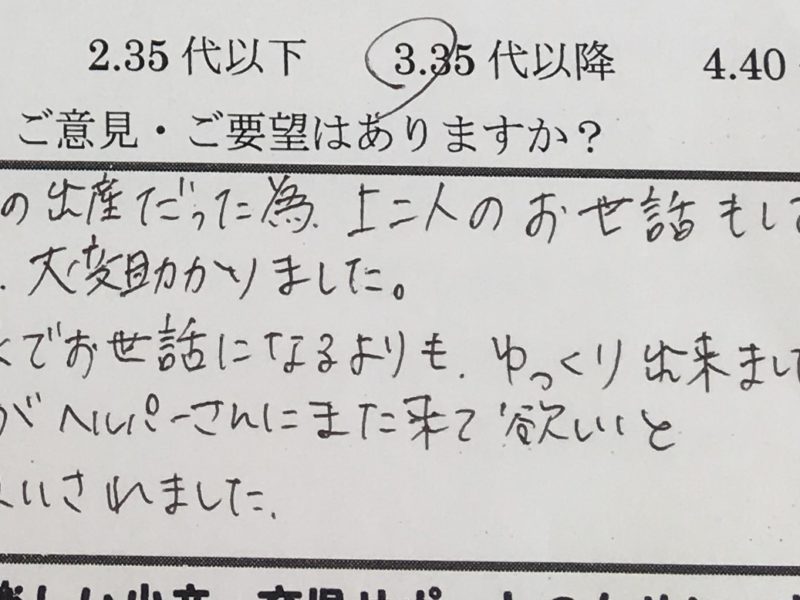 2.35 代以下 3.35 代以降 4.40
ご意見・ご要望はありますか？
の出産だった為、上二人のお世話もして
、大変助かりました。
でお世話になるよりも、ゆっくり出来まし
がヘルパーさんにまた来て欲しいと
いされました。